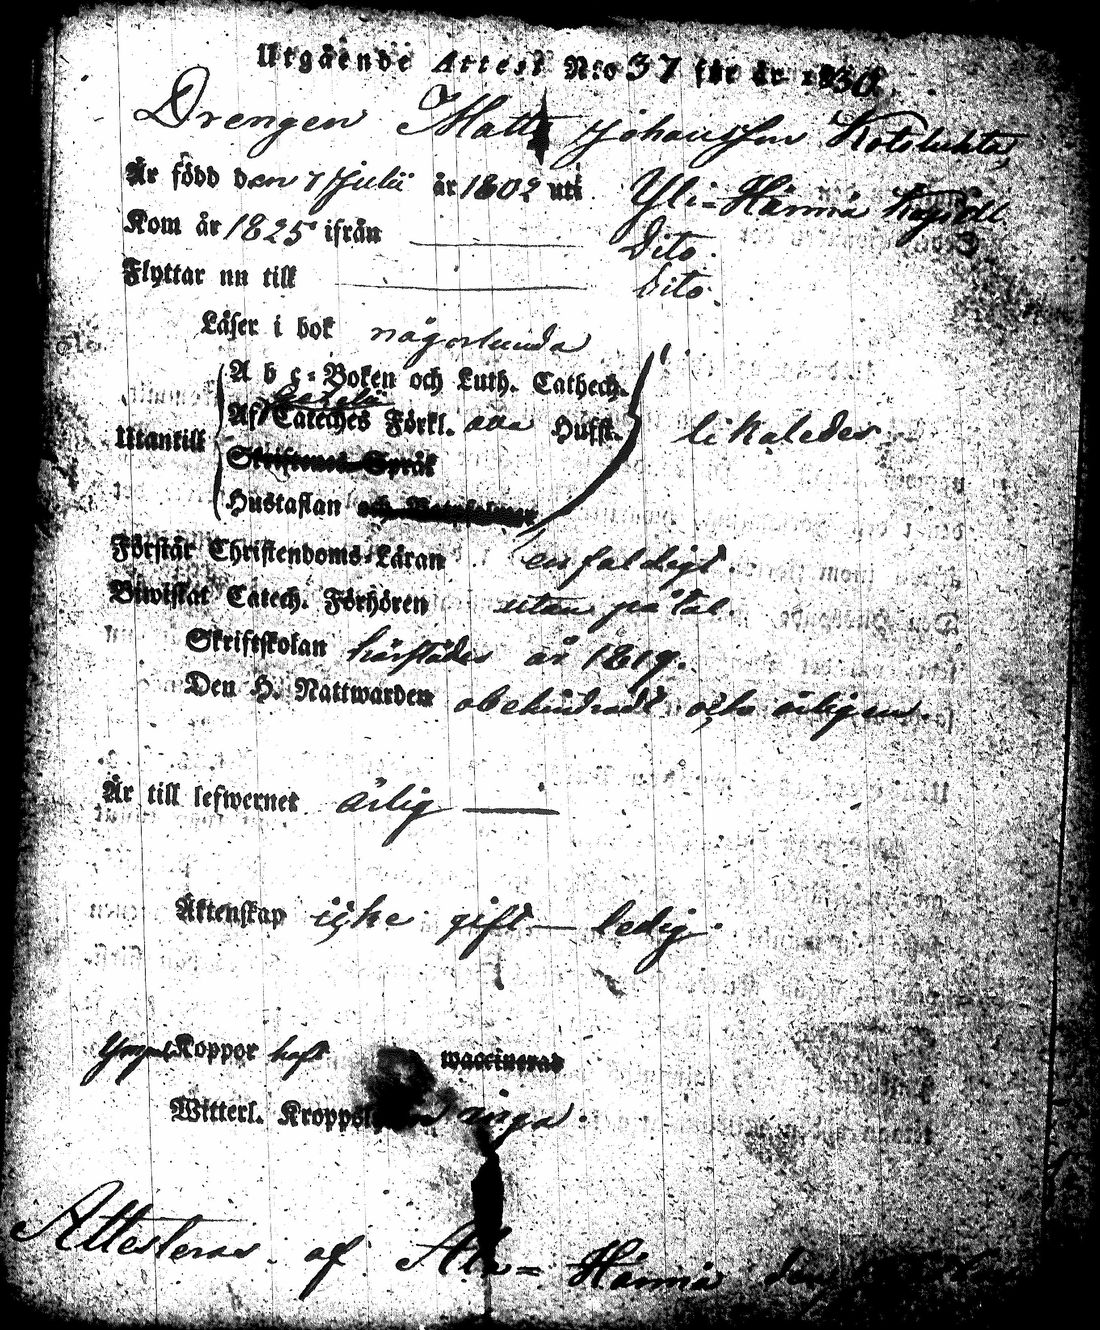 Utgående Attest N:o 37 för år 1830.
Drengen Matts Johansson Kotoluhta,
Är född den 7 Julii år 1802 uti Yli-Härmä Kapell
Kom år 1825 ifrån Dito.
Flyttar nu till Dito.
Läser i bok någorlunda
A b c-Boken och Luth. Cathech.
Utantill Af Cateches Förkl. Husst. likaledes
Skriftenes Språk
Hustaflan och
Förstår Christendoms-Läran enfaldigt
Biwistat Catech. Förhören utan påtal.
Skriftskolan härstädes år 1819.
Den H. Nattwarden obehindradt och årligen.
Är till lefwernet ärlig
Äktenskap icke gift — ledig.
Koppor haft waccinerad
Witterl. Kropps inga.
Attesteras af Härmä den